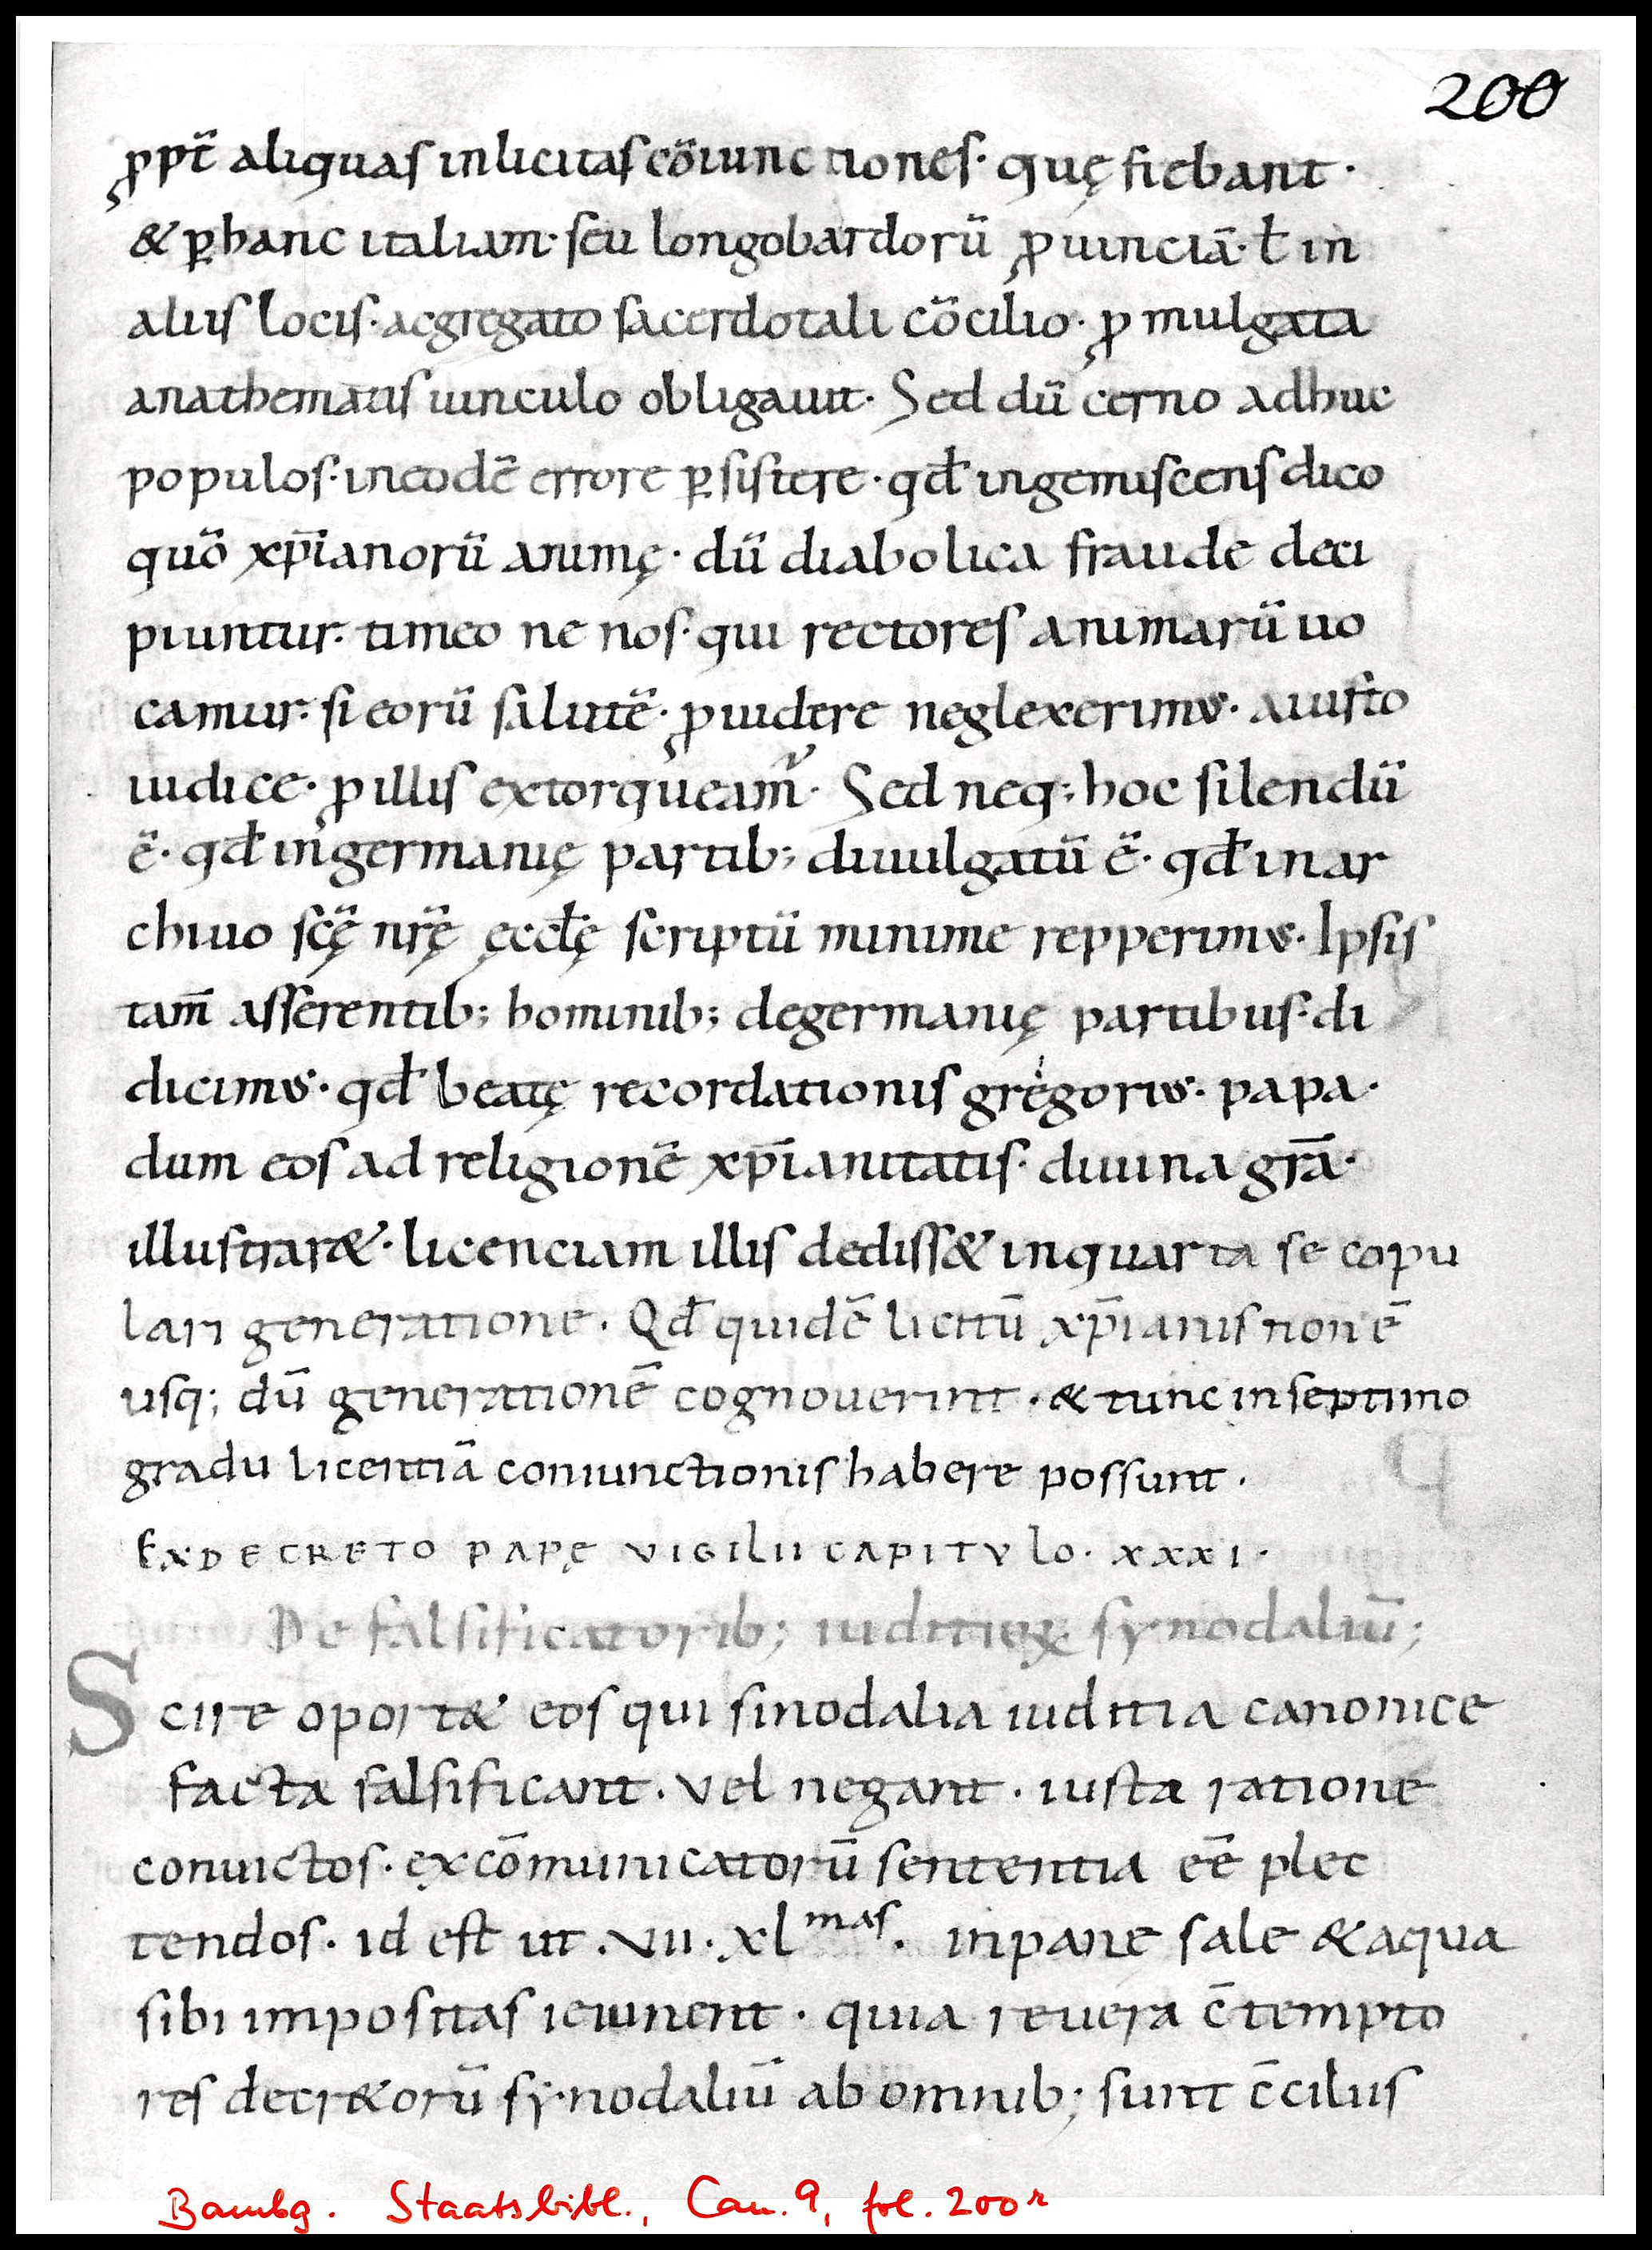 200
ꝓpt̄ aliquas inlicitas cōiunctiones· quę fiebant·
& ꝑ hanc italiam· seu longobardorū ꝓuinciā· ł in
aliis locis· acgregato sacerdotali cōcilio· ꝓmulgata
anathematis uinculo obligauit· Sed dū cerno adhuc
populos· in eodē errore ꝑsistere· qđ ingemiscens dico
quō xp̄ianorū animę· dū diabolica fraude deci
piuntur· timeo ne nos· qui rectores animarū uo
camur· si eorū salutē· ꝓuidere neglexerimus· a iusto
iudice· ꝓ illis extorqueam̄· Sed neq; hoc silendū
ē· qđ in germanię partib; diuulgatū ē· qđ in ar
chiuo scę̄ nrę̄ ęccłę scriptū minime repperimus· Ipsis
tam̄ asserentib; hominib; de germanię partibus· di
dicimus· qđ beatę recordationis gregorius· papa·
dum eos ad religionē xp̄ianitatis· diuina grā·
illustrar&· licenciam illis dediss& in quarta se copu
lari generatione· Qđ quidē licitū xp̄ianis non ē
usq; dū generationē cognouerint· & tunc in septimo
gradu licentiā coniunctionis habere possunt·
EX DECRETO PAPĘ VIGILII CAPITVLO· XXXI·
De falsificatorib; iuditioꝝ synodaliū;
Scire oport& eos qui sinodalia iuditia canonice
facta falsificant· vel negant· iusta ratione
conuictos· excōmunicatorū sententia eē plec
tendos· id est ut· vii· xl^mas· in pane sale & aqua
sibi impositas ieiunent· quia reuera c̄tempto
res decr&orū synodaliū ab omnib; sunt c̄ciliis
Bambg. Staatsbibl., Can. 9, fol. 200r